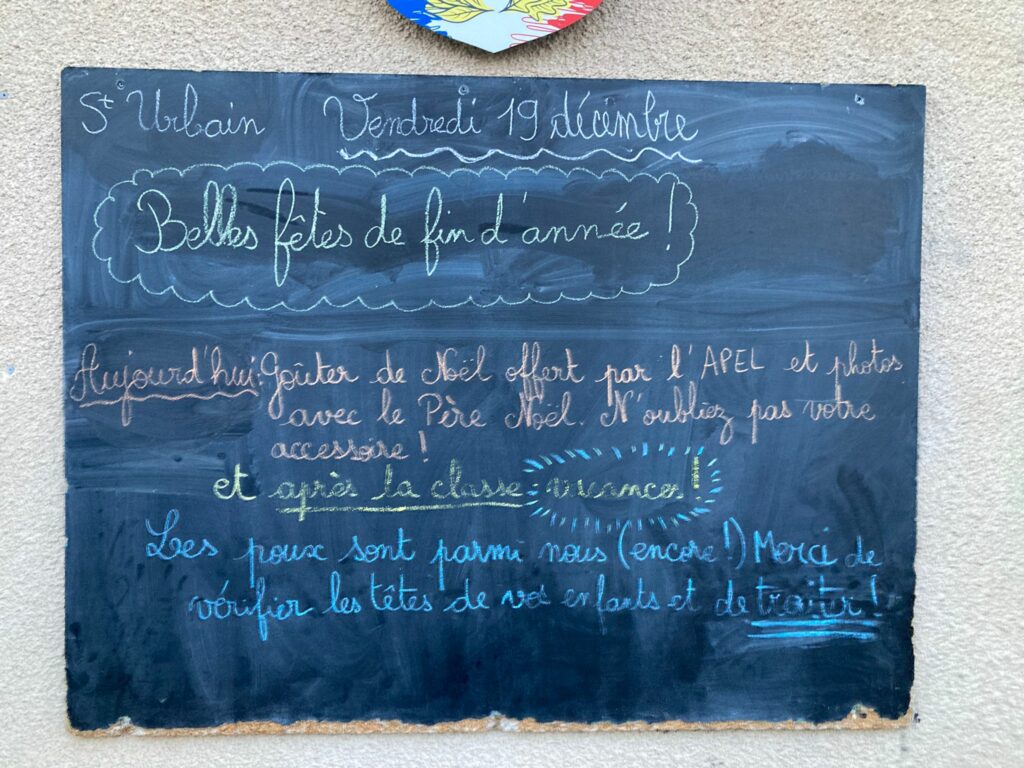 St Urbain Vendredi 19 décembre
Belles fêtes de fin d'année !
Aujourd'hui: Goûter de Noël offert par l'APEL et photos
avec le Père Noël. N'oubliez pas votre
accessoire !
et après la classe : vacances !
Les poux sont parmi nous (encore !) Merci de
vérifier les têtes de vos enfants et de traiter !